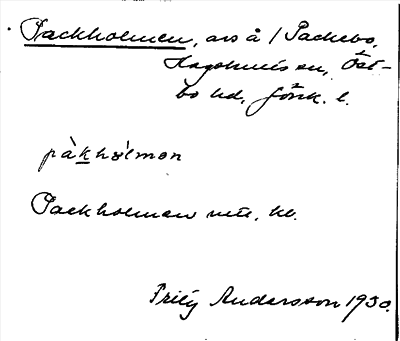 Packholmen, ars å / Packebo,
Hagshults sn, Öst-
bo hd, Jönk. l.
pàkhɷ́lmən
Packholmen uttt. kl.
Fritz Andersson 1930.